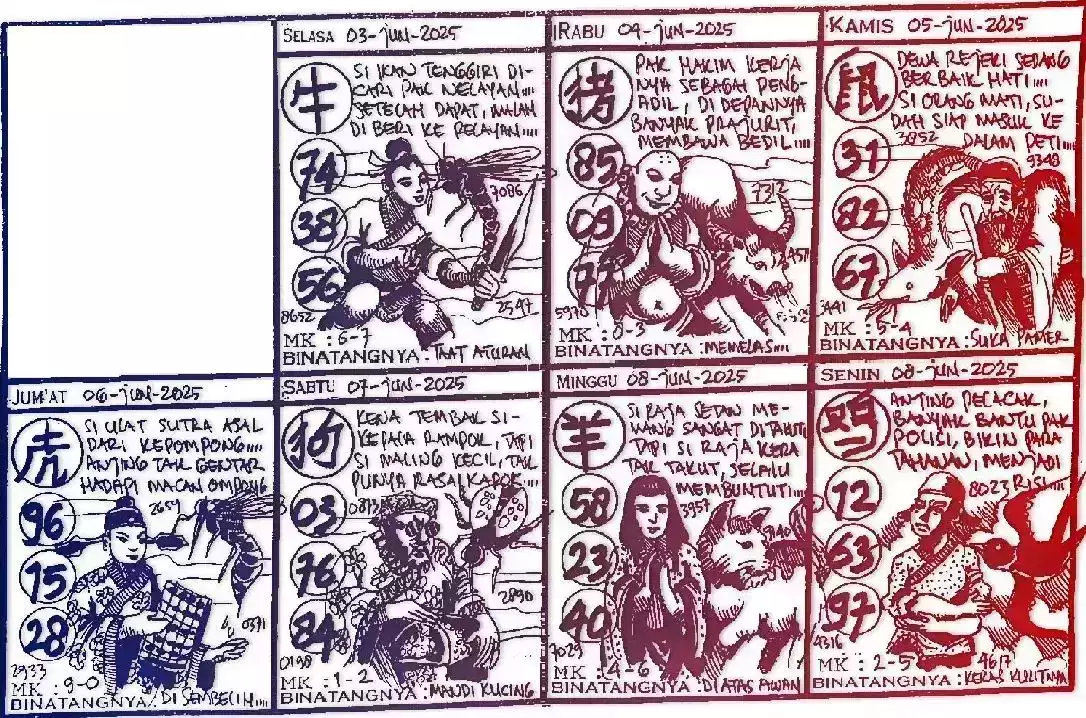 SELASA 03-JUN-2025
牛
SI IKAN TENGGIRI DI-
CARI PAK NELAYAN....
SETELAH DAPAT, MALAH
DI BERI KE PELAYAN....
74
38
56
7086
8652
2547
MK : 6-7
BINATANGNYA : TAAT ATURAN
RABU 04-JUN-2025
猪
PAK HAKIM KERJA
NYA SEBAGAI PENG-
ADIL, DI DEPANNYA
BANYAK PRAJURIT,
MEMBAWA BEDIL....
85
09
77
7312
5970
MK : 0-3
BINATANGNYA : MEMELAS....
KAMIS 05-JUN-2025
鼠
DEWA REJEKI SEDANG
BERBAIK HATI....
SI ORANG MATI, SU-
DAH SIAP MASUK KE
DALAM PETI....
3852
9348
31
82
67
3441
MK : 5-4
BINATANGNYA : SUKA PAMER
JUM'AT 06-JUN-2025
虎
SI ULAT SUTRA ASAL
DARI KEPOMPONG....
ANJING TAK GENTAR
HADAPI MACAN OMPONG
96
15
28
2659
0371
2933
MK : 9-0
BINATANGNYA : DI SEMBELIH....
SABTU 07-JUN-2025
狗
KENA TEMBAK SI-
KEPALA RAMPOK, TAPI
SI MALING KECIL, TAK
PUNYA RASA KAPOK....
03
76
84
0813
2890
0198
MK : 1-2
BINATANGNYA : MANDI KUCING
MINGGU 08-JUN-2025
羊
SI RAJA SETAN ME-
MANG SANGAT DITAKUTI
TAPI SI RAJA KERA
TAK TAKUT, SELALU
MEMBUNTUTI....
58
23
40
3957
7029
MK : 4-6
BINATANGNYA : DI ATAS AWAN
SENIN 09-JUN-2025
鸡
ANJING PELACAK,
BANYAK BANTU PAK
POLISI, BIKIN PARA
TAHANAN, MENJADI
RISI....
8023
12
63
97
4316
4617
MK : 2-5
BINATANGNYA : KERAS KULITNYA